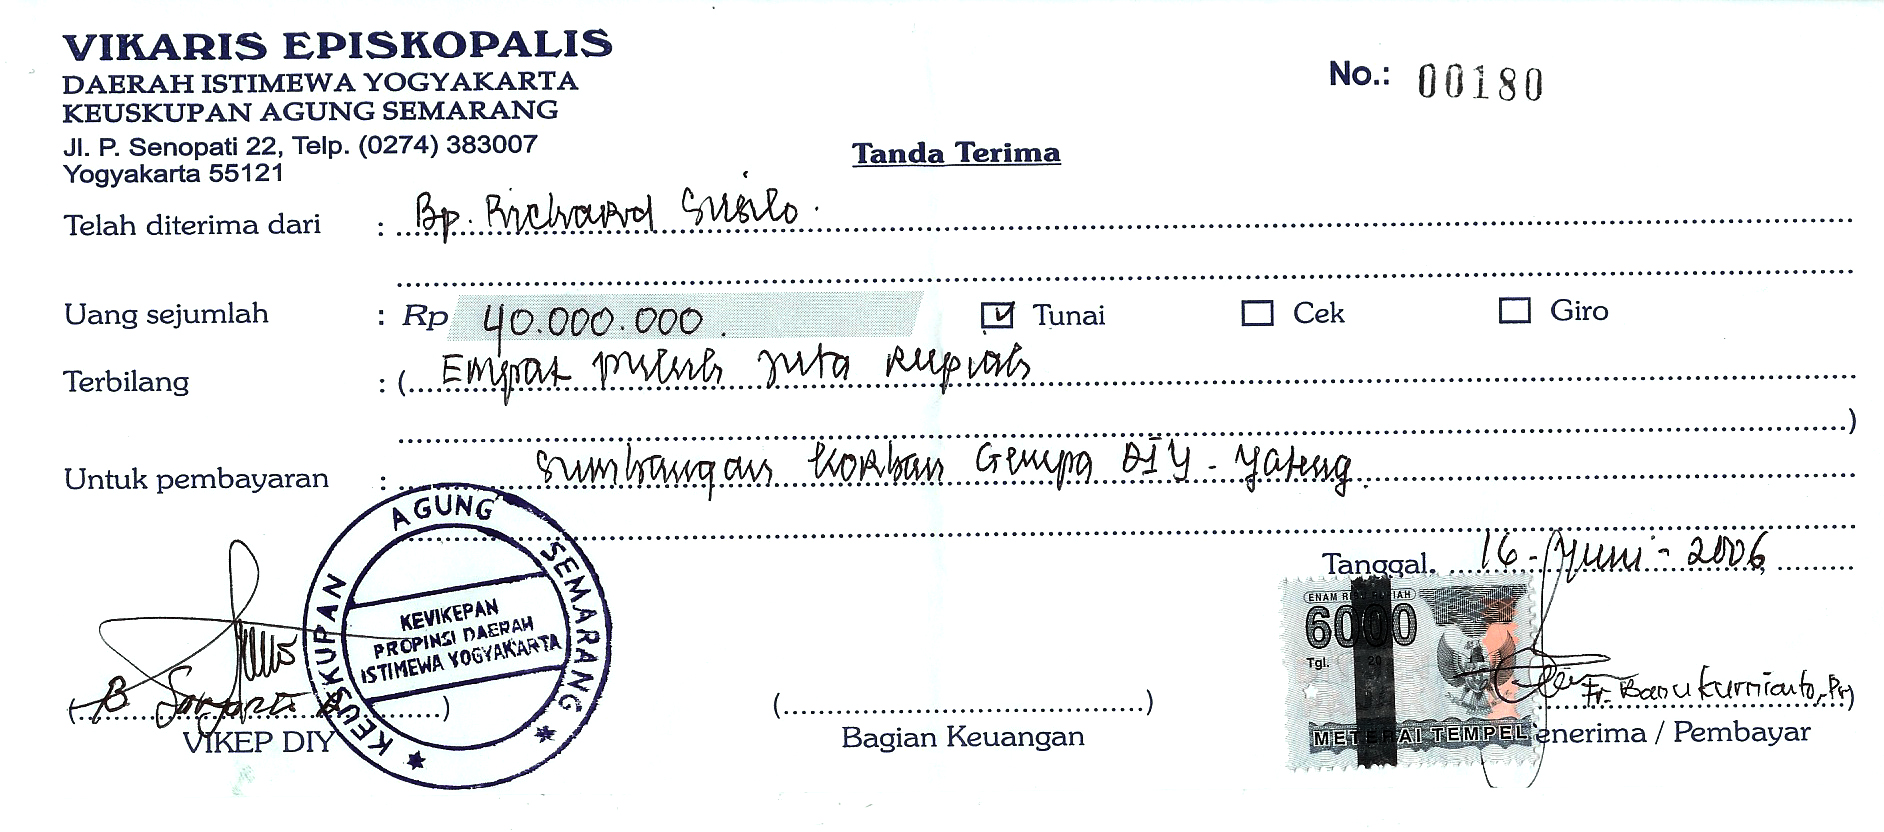 VIKARIS EPISKOPALIS
DAERAH ISTIMEWA YOGYAKARTA
KEUSKUPAN AGUNG SEMARANG
Jl. P. Senopati 22, Telp. (0274) 383007
Yogyakarta 55121
No.: 00180
Tanda Terima
Telah diterima dari : Bp. Richard Susilo.
Uang sejumlah : Rp 40.000.000. Tunai Cek Giro
Terbilang : ( Empat puluh juta rupiah )
Untuk pembayaran : Sumbangan korban Gempa DIY - Jateng.
Tanggal, 16 - Juni - 2006
KEUSKUPAN AGUNG SEMARANG
KEVIKEPAN
PROPINSI DAERAH
ISTIMEWA YOGYAKARTA
ENAM RIBU RUPIAH
6000
Tgl. 20
METERAI TEMPEL
(B )
VIKEP DIY
( )
Bagian Keuangan
Fr. Banu Kurnianto, Prj
enerima / Pembayar